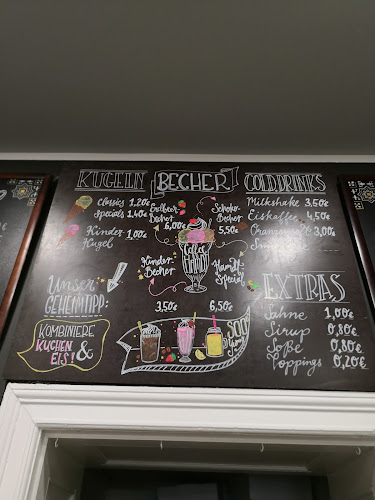 KUGELN
Classics 1,20€
Specials 1,40€
Kinder-
Kugel 1,00€
Unser
GEHEIMTIPP:
KOMBINIERE
KUCHEN &
EIS!
BECHER
Erdbeer-
Becher
6,00€
Schoko-
Becher
5,50€
Kinder-
Becher
3,50€
Special
6,50€
SOO
COLD DRINKS
Milkshake 3,50€
Eiskaffee 4,50€
3,00€
EXTRAS
Sahne 1,00€
Sirup 0,80€
Soße 0,80€
Toppings 0,20€